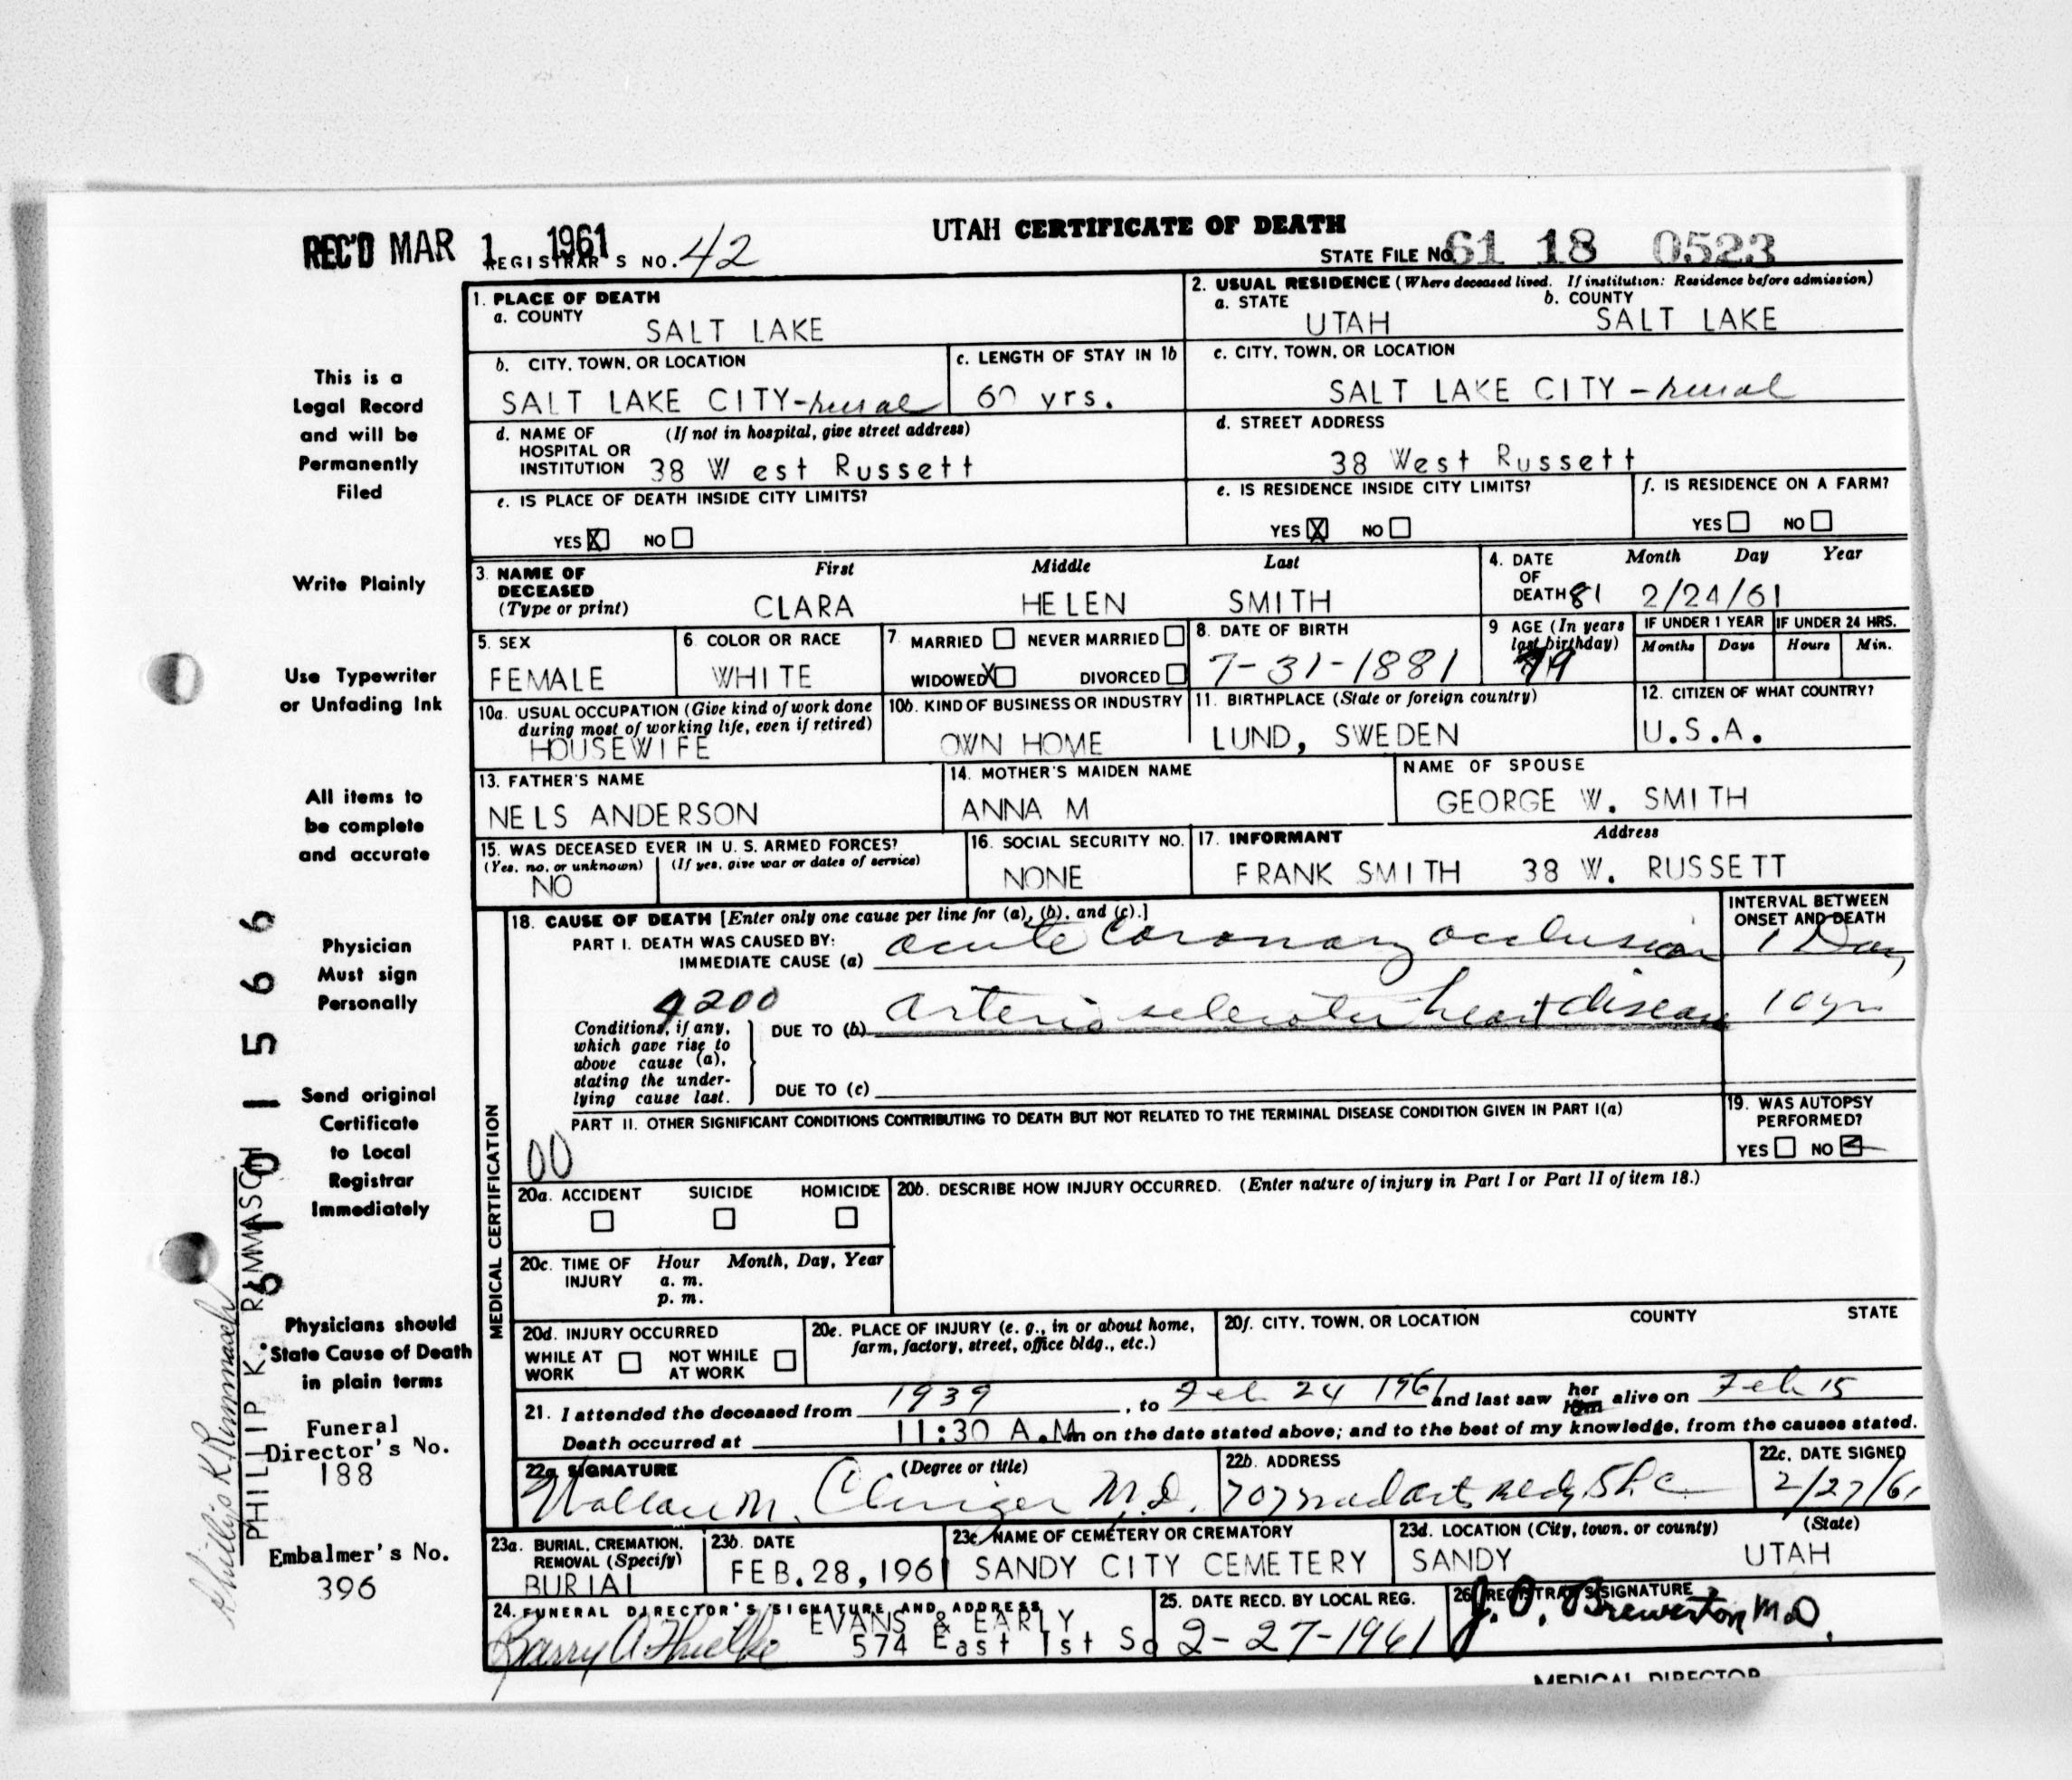 UTAH CERTIFICATE OF DEATH
REC'D MAR 1 1961 REGISTRAR'S NO. 42
STATE FILE NO. 61 18 0523
1. PLACE OF DEATH
a. COUNTY
SALT LAKE
2. USUAL RESIDENCE (Where deceased lived. If institution: Residence before admission)
a. STATE b. COUNTY
UTAH SALT LAKE
b. CITY, TOWN, OR LOCATION
SALT LAKE CITY-rural
c. LENGTH OF STAY IN 1b
60 yrs.
c. CITY, TOWN, OR LOCATION
SALT LAKE CITY - rural
d. NAME OF HOSPITAL OR INSTITUTION (If not in hospital, give street address)
38 W est Russett
d. STREET ADDRESS
38 West Russett
e. IS PLACE OF DEATH INSIDE CITY LIMITS?
YES X NO
e. IS RESIDENCE INSIDE CITY LIMITS?
YES X NO
f. IS RESIDENCE ON A FARM?
YES NO
3. NAME OF DECEASED (Type or print)
First Middle Last
CLARA HELEN SMITH
4. DATE OF DEATH Month Day Year
81 2/24/61
5. SEX
FEMALE
6. COLOR OR RACE
WHITE
7. MARRIED NEVER MARRIED
WIDOWED X DIVORCED
8. DATE OF BIRTH
7-31-1881
9 AGE (In years last birthday)
79
IF UNDER 1 YEAR IF UNDER 24 HRS.
Months Days Hours Min.
10a. USUAL OCCUPATION (Give kind of work done during most of working life, even if retired)
HOUSEWIFE
10b. KIND OF BUSINESS OR INDUSTRY
OWN HOME
11. BIRTHPLACE (State or foreign country)
LUND, SWEDEN
12. CITIZEN OF WHAT COUNTRY?
U.S.A.
13. FATHER'S NAME
NELS ANDERSON
14. MOTHER'S MAIDEN NAME
ANNA M
NAME OF SPOUSE
GEORGE W. SMITH
15. WAS DECEASED EVER IN U. S. ARMED FORCES?
(Yes, no, or unknown) (If yes, give war or dates of service)
NO
16. SOCIAL SECURITY NO.
NONE
17. INFORMANT Address
FRANK SMITH 38 W. RUSSETT
MEDICAL CERTIFICATION
18. CAUSE OF DEATH [Enter only one cause per line for (a), (b), and (c).]
INTERVAL BETWEEN ONSET AND DEATH
PART I. DEATH WAS CAUSED BY:
IMMEDIATE CAUSE (a) acute coronary occlusion 1 Day
4200
Conditions, if any, which gave rise to above cause (a), stating the underlying cause last.
DUE TO (b) arterio sclerotic heart disease 10 yrs
DUE TO (c)
PART II. OTHER SIGNIFICANT CONDITIONS CONTRIBUTING TO DEATH BUT NOT RELATED TO THE TERMINAL DISEASE CONDITION GIVEN IN PART I(a)
00
19. WAS AUTOPSY PERFORMED?
YES NO
20a. ACCIDENT SUICIDE HOMICIDE
20b. DESCRIBE HOW INJURY OCCURRED. (Enter nature of injury in Part I or Part II of item 18.)
20c. TIME OF INJURY Hour Month, Day, Year
a. m.
p. m.
20d. INJURY OCCURRED
WHILE AT WORK NOT WHILE AT WORK
20e. PLACE OF INJURY (e. g., in or about home, farm, factory, street, office bldg., etc.)
20f. CITY, TOWN, OR LOCATION COUNTY STATE
21. I attended the deceased from 1939, to Feb 24 1961 and last saw her him alive on Feb 15
Death occurred at 11:30 A.M. m on the date stated above; and to the best of my knowledge, from the causes stated.
22a SIGNATURE (Degree or title)
M.D.
22b. ADDRESS
707
22c. DATE SIGNED
2/27/61
23a. BURIAL, CREMATION, REMOVAL (Specify)
BURIAL
23b. DATE
FEB.28,1961
23c. NAME OF CEMETERY OR CREMATORY
SANDY CITY CEMETERY
23d. LOCATION (City, town, or county) (State)
SANDY UTAH
24. FUNERAL DIRECTOR'S SIGNATURE AND ADDRESS
EVANS & EARLY
574 East 1st So
25. DATE RECD. BY LOCAL REG.
2-27-1961
26. REGISTRAR'S SIGNATURE
J. O. Brewerton M.D.
MEDICAL DIRECTOR
This is a
Legal Record
and will be
Permanently
Filed
Write Plainly
Use Typewriter
or Unfading Ink
All items to
be complete
and accurate
Physician
Must sign
Personally
Send original
Certificate
to Local
Registrar
Immediately
Physicians should
State Cause of Death
in plain terms
Funeral
Director's No.
188
Embalmer's No.
396
Phillip K. Remmasch
PHILLIP K. REMMASCH